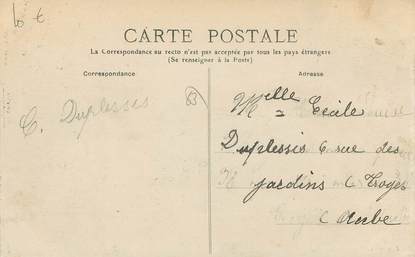 10 €
CARTE POSTALE
La Correspondance au recto n'est pas acceptée par tous les pays étrangers.
(Se renseigner à la Poste)
Correspondance
Adresse
C. Duplessis
83
Melle Cécile
Duplessis 6 rue des
jardins Troyes
Aube